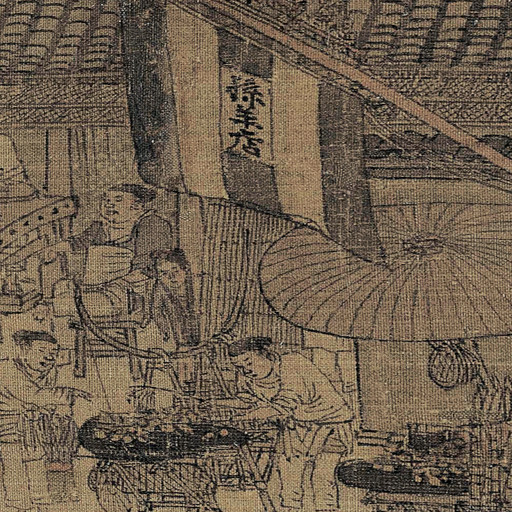 孫羊店